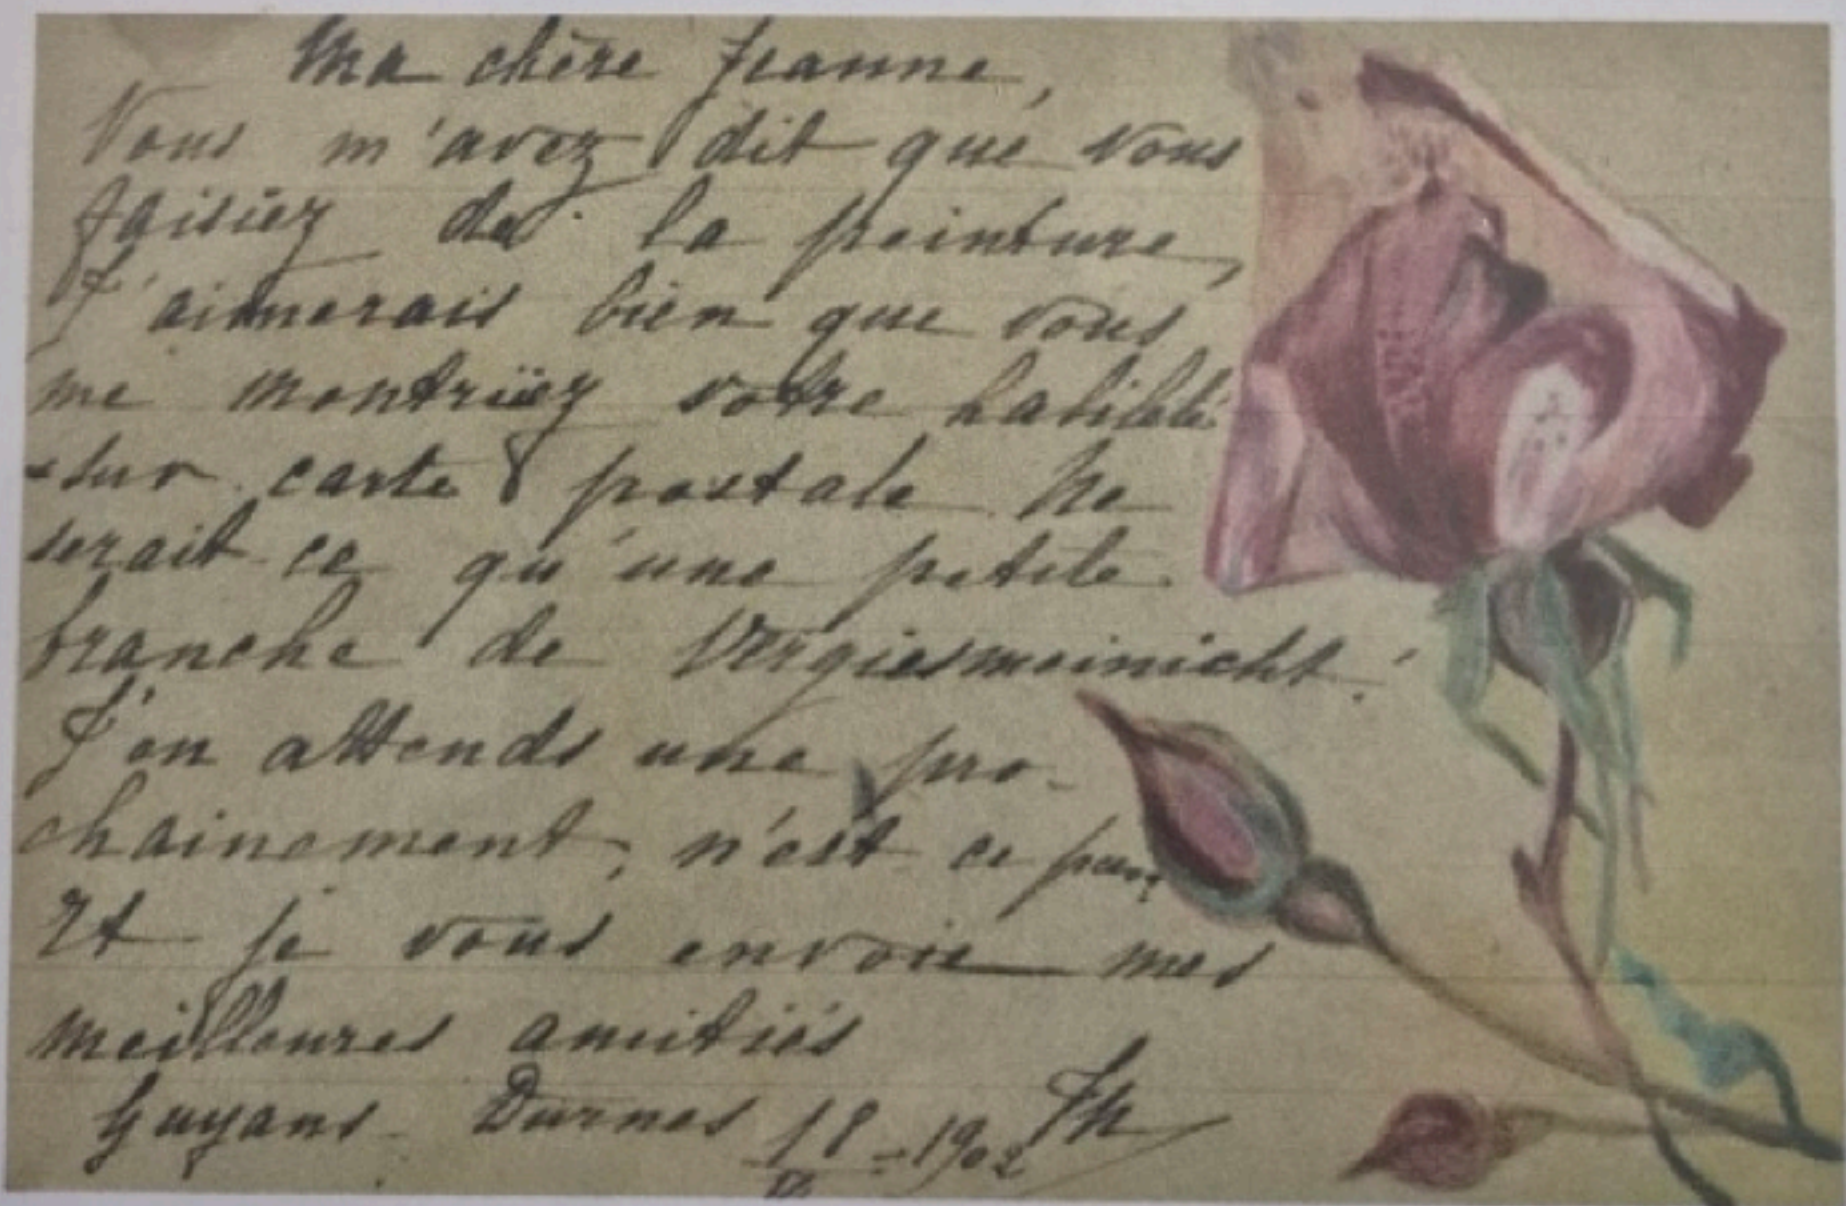 Ma chère Jeanne,
Vous m'avez dit que vous
faisiez de la peinture,
J'aimerais bien que vous
me montriez votre habileté
sur carte postale Ne
serait-ce qu'une petite
branche de Vergiesmeinicht!
J'en attends une pro-
chainement, n'est ce pas?
Et je vous envoie mes
meilleures amitiés
Guyans-Durnes 18 - 1902